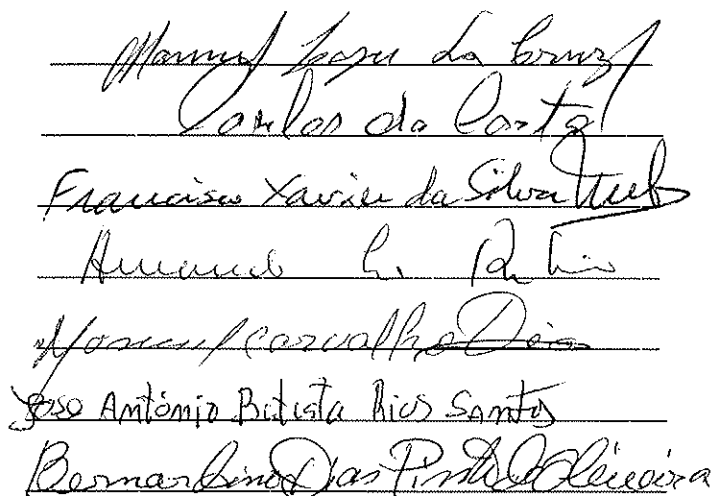 Manuel da Cruz
Carlos da Costa
Francisco Xavier da Silva
Armando
Manuel Carvalho Dias
José António Batista Rios Santos
Bernardino Dias Pinto de Oliveira